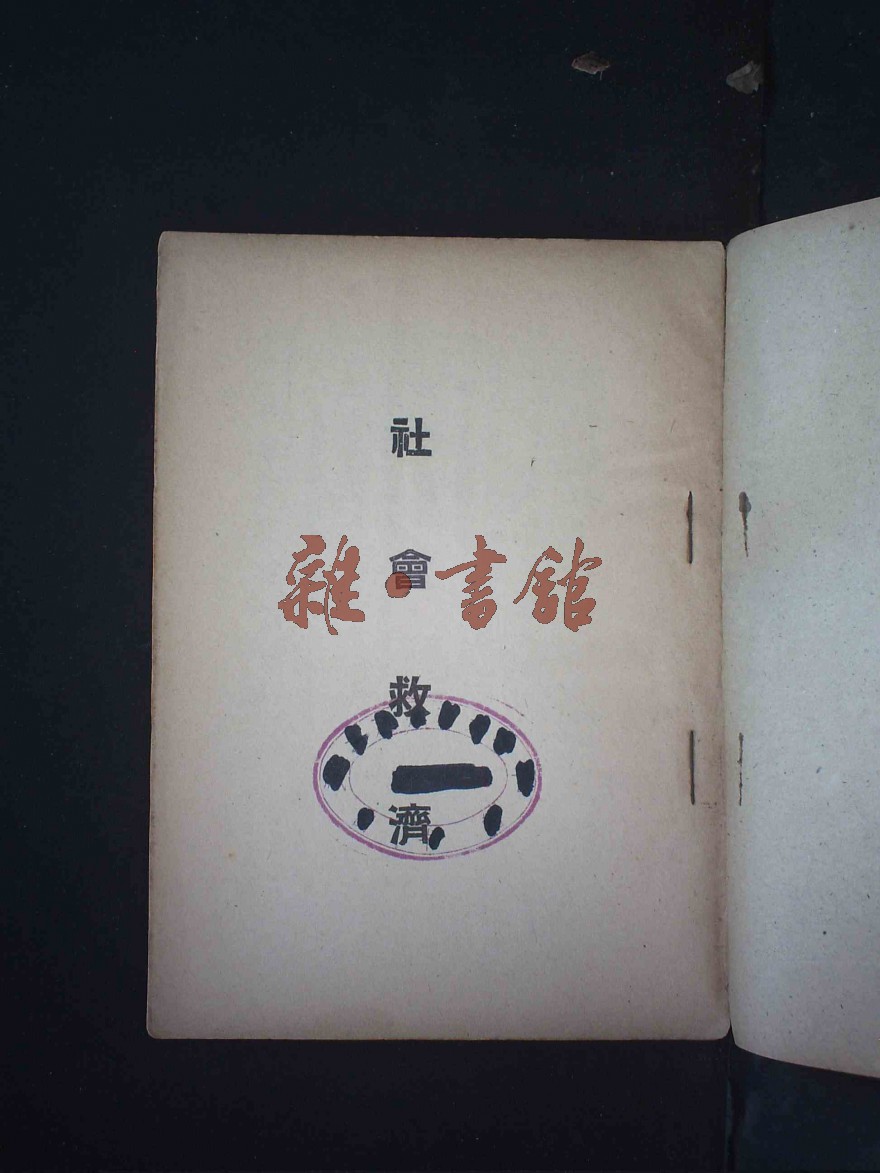 社會救濟
雜·書館